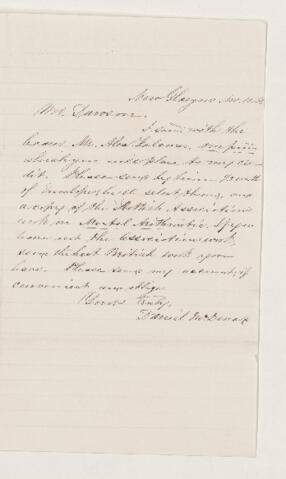 New Glasgow, Nov. 10.
Mr. Dawson.
I send with the
bearer Mr. Alex
which you will place to my cre-
dit. Please send by him
of envelopes both select them, and
a copy of the Scottish Association's
work on Mental Arithmetic. If you
have not the Association's work,
send the best British work you
have. Please send my account if
convenient and oblige
Yours Truly,
Daniel